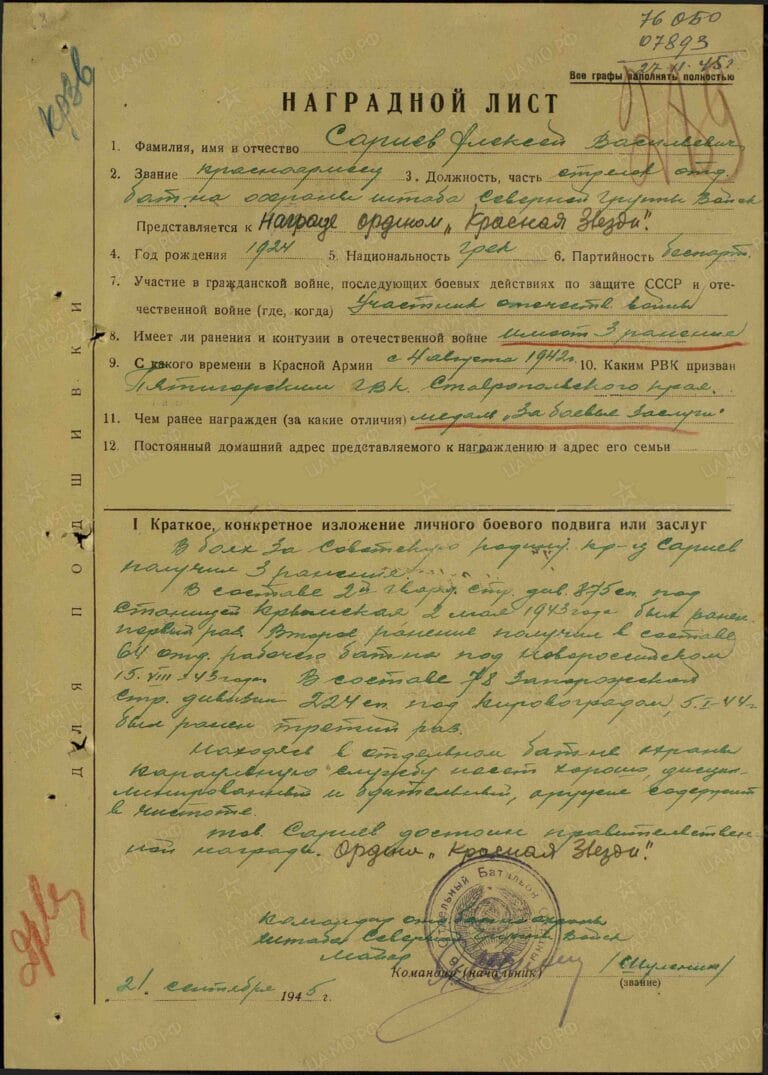 76 ОБО
07893
27.11.45г.
Все графы заполнять полностью
НАГРАДНОЙ ЛИСТ
1. Фамилия, имя и отчество Сариев Алексей Василевич
2. Звание красноармеец 3. Должность, часть стрелок отд.
бат-на охраны штаба Северной Группы Войск
Представляется к Награде орденом „Красная Звезда".
4. Год рождения 1924 5. Национальность грек 6. Партийность беспарт.
7. Участие в гражданской войне, последующих боевых действиях по защите СССР и оте-
чественной войне (где, когда) Участник отечеств. войны
8. Имеет ли ранения и контузии в отечественной войне имеет 3 ранения
9. С какого времени в Красной Армии с 4 августа 1942г. 10. Каким РВК призван
Пятигорским ГВК Ставропольского края.
11. Чем ранее награжден (за какие отличия) медаль „За боевые заслуги"
12. Постоянный домашний адрес представляемого к награждению и адрес его семьи
ДЛЯ ПОДШИВКИ
I Краткое, конкретное изложение личного боевого подвига или заслуг
В боях за Советскую родину кр-ец Сариев
получил 3 ранения.
В составе 2й гвард. стр. див. 875 сп. под
станицей Крымская 2 мая 1943 года был ранен
первый раз. Второе ранение получил в составе
64 отд. рабочего бат-на под Новороссийском
15.VIII-43 года. В составе 78 Запорожской
стр. дивизии 224 сп. под Кировоградом, 5.I-44г
был ранен третий раз.
Находясь в отдельном бат-не охраны
караульную службу несет хорошо, дисцип-
линированный и бдительный, оружие содержит
в чистоте.
тов. Сариев достоин правительствен-
ной награды. Орден „Красная Звезда".
Отдельный Батальон
Командир отд. бат-на охраны
штаба Северной Группы Войск
Майор
Командир (начальник)
(звание)
21 сентября 1945 г.
ЦАМО.РФ